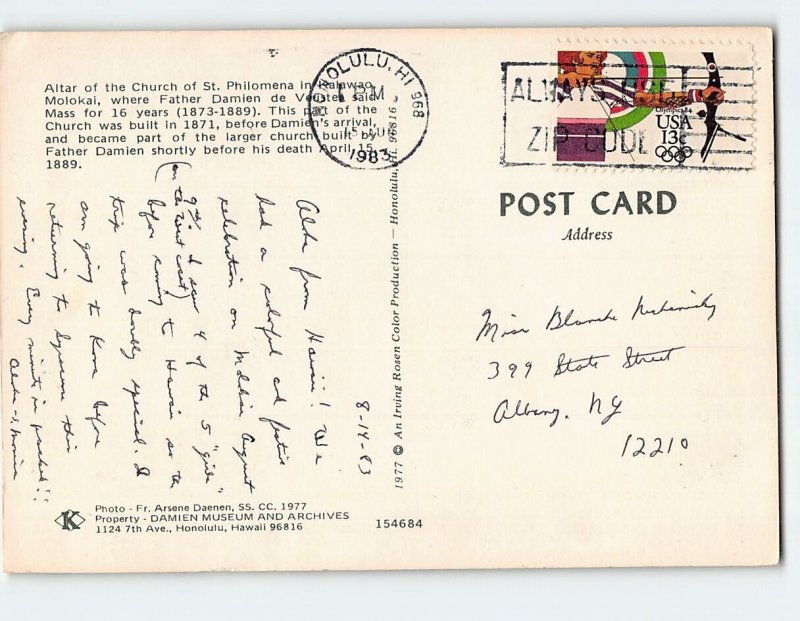 Altar of the Church of St. Philomena in Kalawao,
Molokai, where Father Damien de Veuster said
Mass for 16 years (1873-1889). This part of the
Church was built in 1871, before Damien's arrival,
and became part of the larger church built by
Father Damien shortly before his death April 15,
1889.
HONOLULU, HI 968
PM
15 AUG
1983
ALWAYS USE
ZIP CODE
Olympics 84
USA
13c
POST CARD
Address
Miss Blanche
399 State Street
Albany, NY
12210
1977 © An Irving Rosen Color Production — Honolulu, HI. 96816
8-14-83
Aloha from Hawaii! We
had a colorful and festive
celebration on Molokai August
9th. I saw 4 of the 5 "girls"
(on the west coast)
before coming to Hawaii so the
trip was doubly special. I
am going to Kona before
returning to Syracuse this
evening. Every minute is packed!!
Aloha - S.
K
Photo - Fr. Arsene Daenen, SS. CC. 1977
Property - DAMIEN MUSEUM AND ARCHIVES
1124 7th Ave., Honolulu, Hawaii 96816
154684